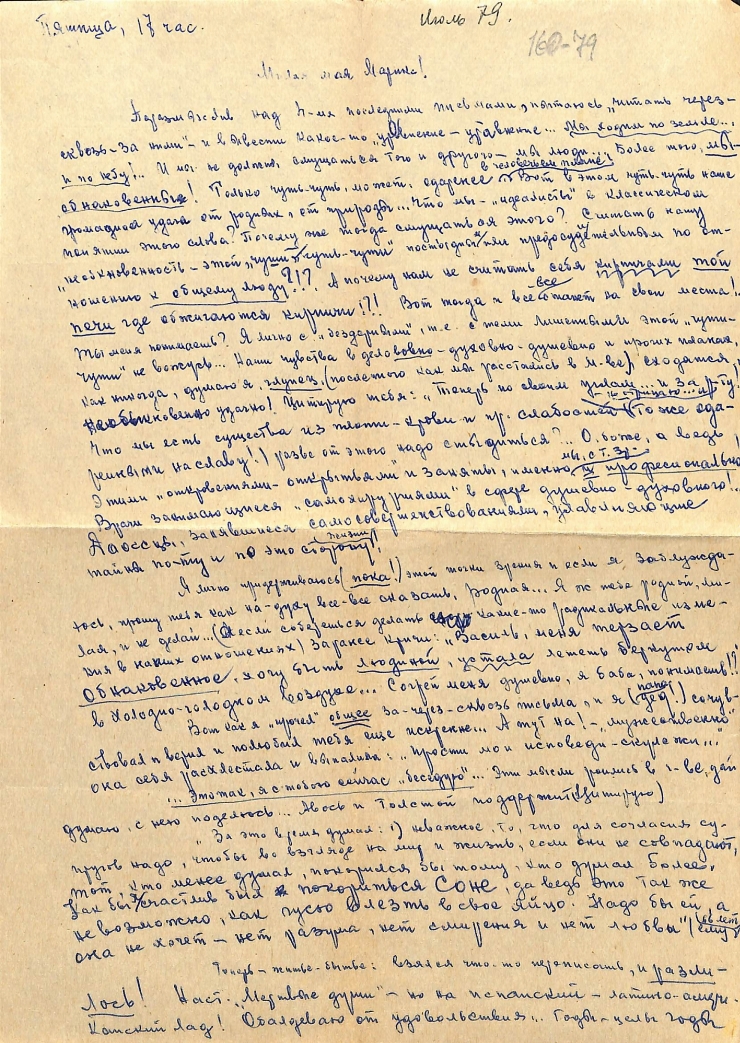 Пятница, 17 час.
Июль 79.
160-79
Милая моя Марина!
Поразмыслив над 4-мя последними письмами, пытаюсь "читать через-
сквозь-за ними" - и вывести какое-то "уравнение - уравнение... Мы ходим по земле...
и по небу!.. И мы не должны смущаться того и другого - мы люди... Более того, мы -
обнаковенные! Только чуть-чуть, может, одареннее в человечьем плане. Вот в этом чуть-чуть наше
громадная удача от родных, от природы... Что мы - "идеалисты" в классическом
понятии этого слова? Почему же тогда смущаться этого? Считать нашу
"необнкновенность - этой "чути-чуть-чути" постыдной или предосудительным по от-
ношению к общему люду?!?. А почему нам не считать себя кирпичами той
печи где обжигаются кирпичи?!! Вот тогда и все все встанет на свои места!
Ты меня понимаешь? Я лично с "бездарными", т.е. с теми лишенными этой "чути-
чути" не вожусь... Наши чувства в деловово-духовно-душевно и прочих планах,
как никогда, думаю я, глупец, (после того как мы расстались в М-ве) сходятся
необыкновенно удачно! Цитирую тебя: "Теперь по своим углам... и за
Что мы есть существа из плоти-крови и пр. слабостей (тоже ода-
ренными на славу!) разве от этого надо стыдиться?... О, боже, а ведь
этими "откровениями-открытьями" и заняты, именно мы, с т.зр. профессионально
Врачи занимающиеся "самохирургиями" в сфере душевно-духовного!..
занявшиеся самосовершенствованиями, уставлияющие
тайна по ту и по это сторону жизни!
Я лично придерживаюсь (пока!) этой точки зрения и если я заблужда-
юсь, прошу тебя как на-духу все-все сказать, родная... Я ж тебе родной, ми-
лая, и не делай... (если соберешься делать какие-то радикальные изме-
ния в наших отношениях) заранее кричи: "Василь, меня терзает
обнаковенное, я хочу быть людиной, устала летать беркутом
в холодно-голодном воздухе... Согрей меня душевно, я баба, понимаешь!?
Вот как я "прочел" общее за-через-сквозь письма, и я (папа дед!) сочув-
ствовал и верил и полюбил тебя еще искренне... А тут на! - "мужественно"
она себя расхлестала и выпалила: "Прости мои исповеди-скулежи..."
"... Это так, я с тобою сейчас "беседую"... Эти мысли роились в г-ве, дай
думаю, с нею поделюсь... Авось и Толстой поддержит (цитирую)
"За это время думал: 1) неважное, то, что для согласия су-
пругов надо, чтобы во взгляде на мир и жизнь, если они не совпадают,
тот, кто менее думал, покорился бы тому, кто думал более.
Как бы я счастлив был покориться Соне, да ведь это так же
невозможно, как гусю влезть в свое яйцо. Надо бы ей, а
она не хочет - нет разума, нет смирения и нет любви" (ему 66 лет)
Теперь - житье-бытье: взялся что-то переписать, и разли-
лось! Наст. "Мертвые души" - но на испанский - латино-амери-
канский лад! Обалдеваю от удовольствия... Годы-целы годы